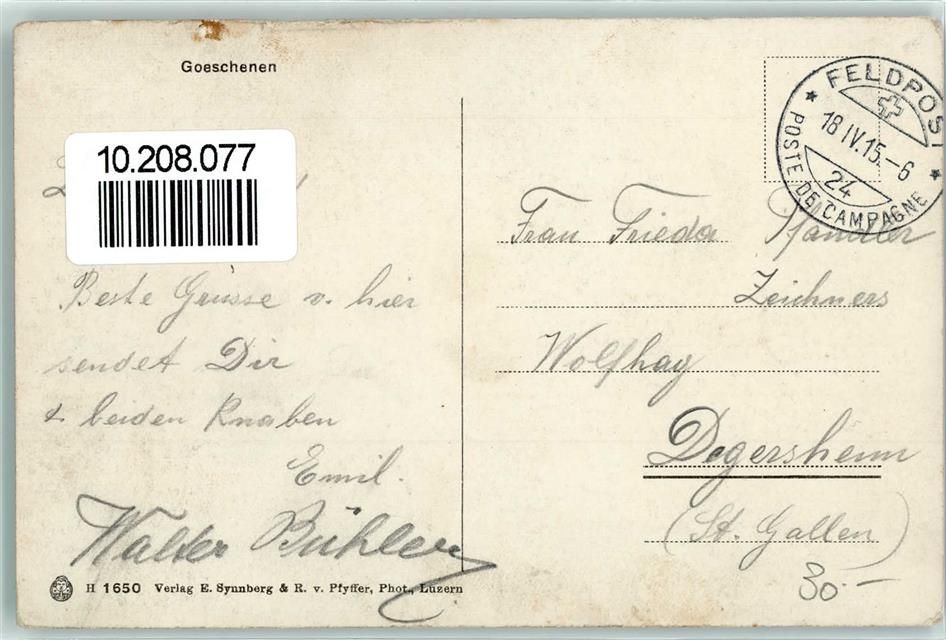 Goeschenen
10.208.077
Beste Grüsse v. hier
sendet Dir
& beiden Knaben
Emil.
Walter Bühler
H 1650 Verlag E. Synnberg & R. v. Pfyffer, Phot., Luzern
FELDPOST
18 IV.15.–6
24
POSTE DE CAMPAGNE
Frau Frieda
Zeichners
Wolfhag
Degersheim
(St. Gallen)
30.–